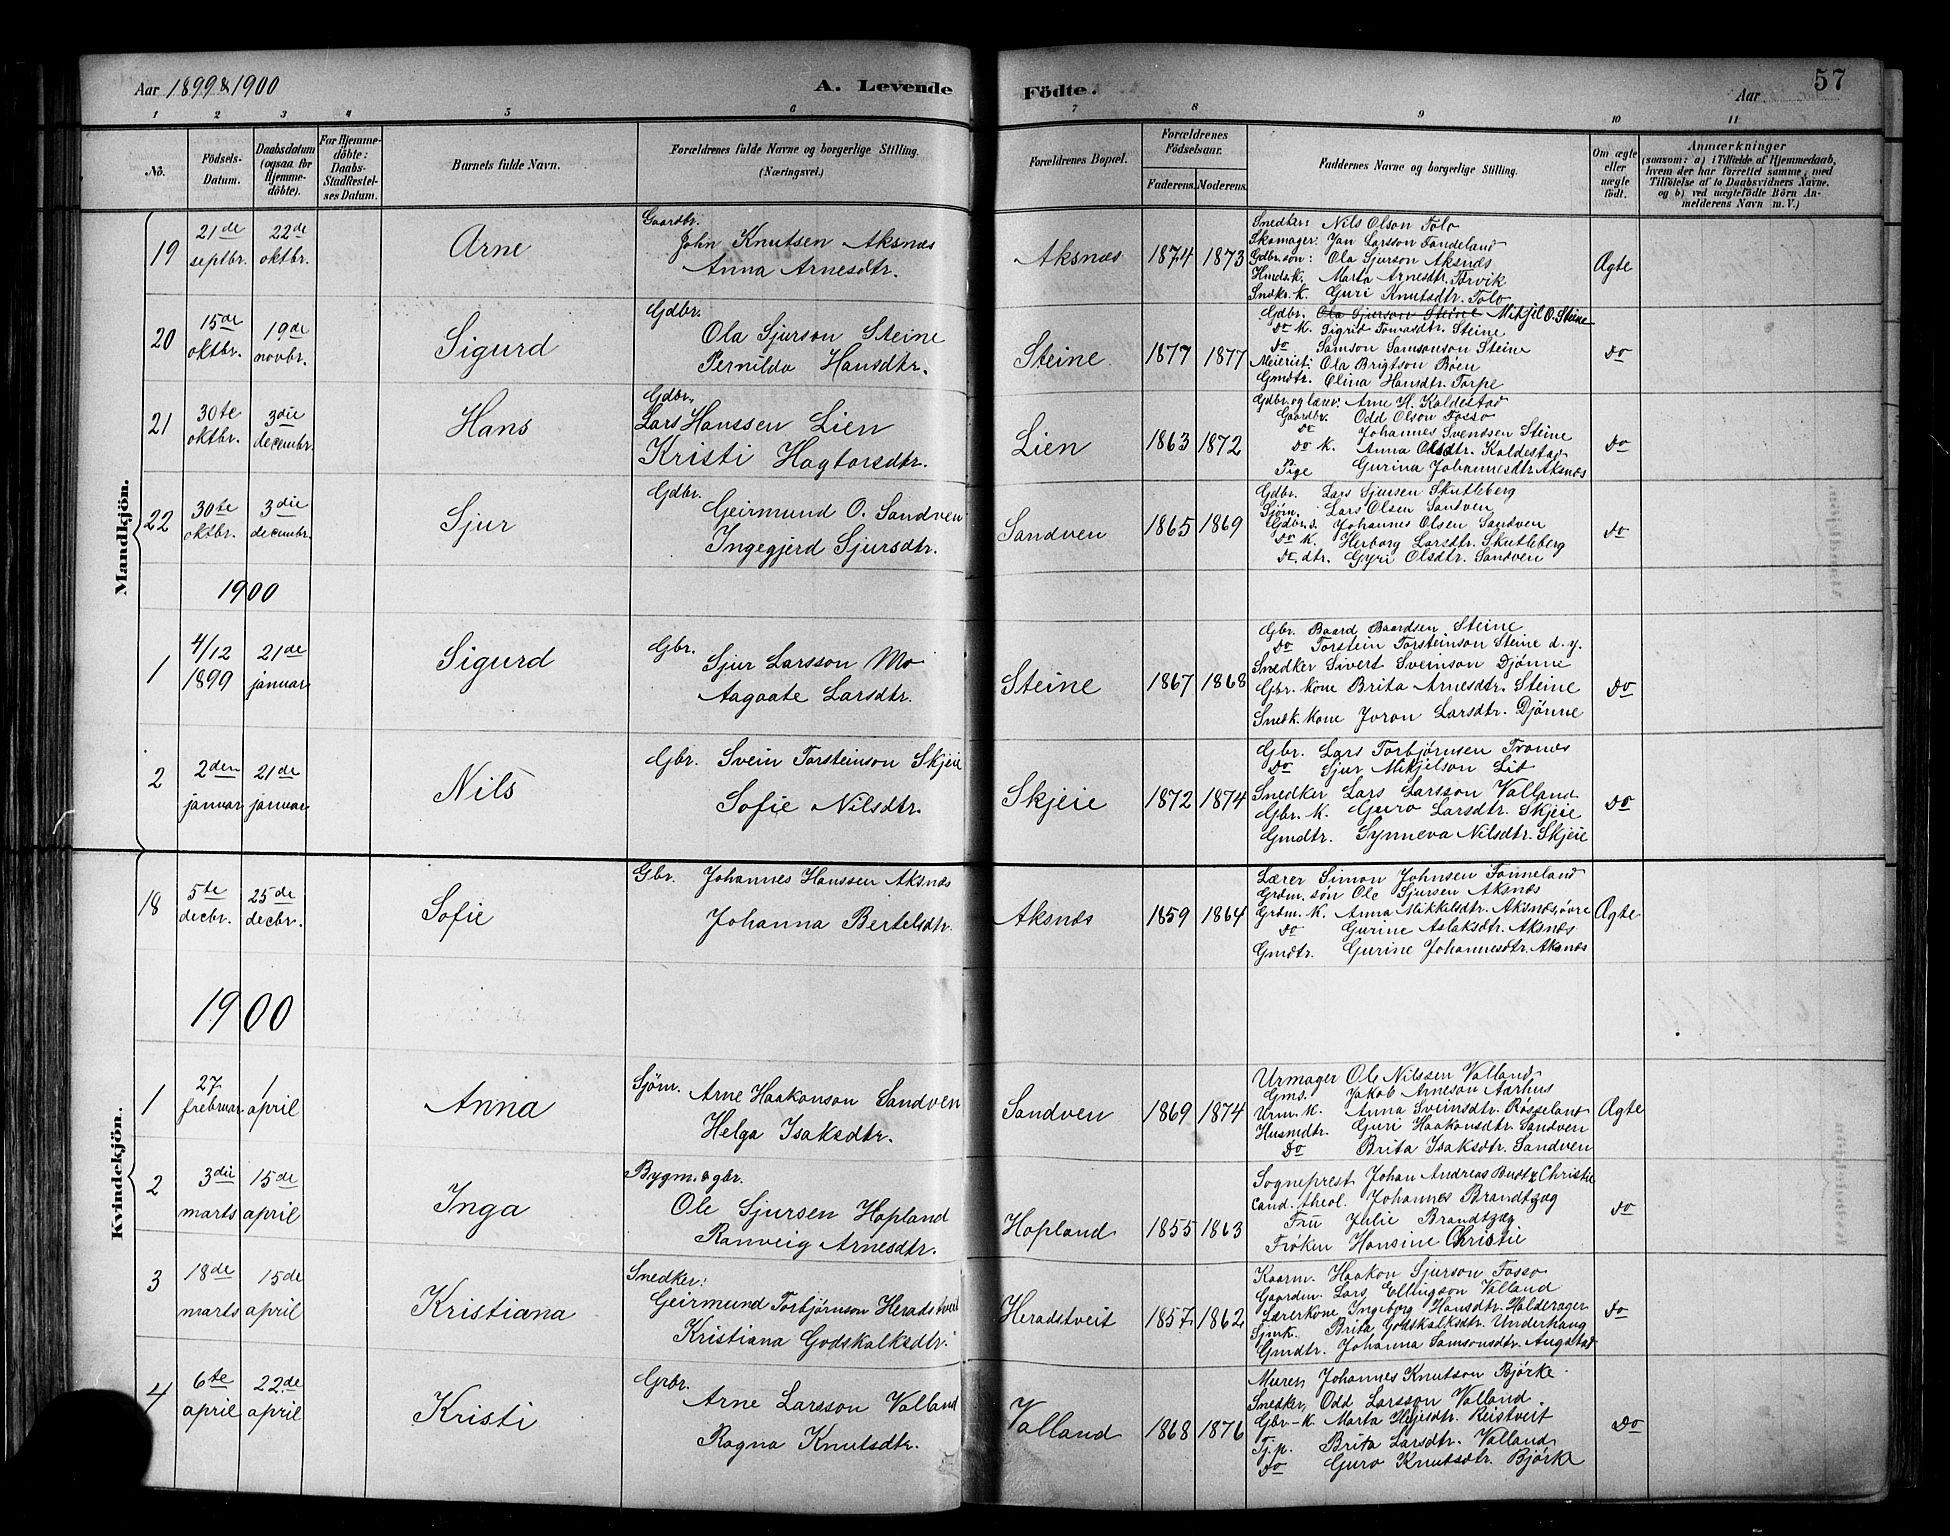 Aar 1899 & 1900
A. Levende Födte.
Aar
57
1 2 3 4 5 6 7 8 9 10 11
No.
Födsels-Datum.
Daabsdatum (ogsaa for Hjemmedöbte).
For Hjemmedöbte: Daabs-Stadfæstelses Datum.
Barnets fulde Navn.
Forældrenes fulde Navne og borgerlige Stilling. (Næringsvei.)
Forældrenes Bopæl.
Forældrenes Födselsaar.
Faderens. Moderens.
Faddernes Navne og borgerlige Stilling.
Om ægte eller uægte födt.
Anmærkninger
(saasom: a) i Tilfælde af Hjemmedaab, hvem der har forrettet samme, med Tilföielse af to Daabsvidners Navne. og b) ved uægtefödte Börn Anmelderens Navn m. V.)
Mandkjön.
19 21de septbr. 22de oktbr. Arne
Gaardbr.
John Knutsen Aksnæs
Anna Arnesdtr.
Aksnæs 1874 1873
Snedker: Nils Olson Tolo
Skomager: Jan Larsson Tandeland
Gdbr.søn: Ola Sjurson Aksnæs
Husm.k. Marta Arnesdtr. Torvik
Snedk. K. Guri Knutsdtr. Tolo
Ægte
20 15de oktbr. 19de novbr. Sigurd
Gdbr.
Ola Sjurson Steine
Pernilda Hansdtr.
Steine 1877 1877
Gdbr. Ola Sjurson Steine Mikjil O. Steine
Do K. Sigrid Tomasdtr. Steine
Do Samson Samsonson Steine
Meierist: Ola Brigtson Bøen
Gmdtr. Olina Hansdtr. Torpe
Do
21 30te oktbr. 3die decembr. Hans
Gdbr.
Lars Hanssen Lien
Kristi Hagtorsdtr.
Lien 1863 1872
Gdbr. og lærer. Arne H. Kaldestad
Gaardbr. Odd Olson Fosso
Do Johannes Svendsen Steine
Do K. Anna Olsdtr. Kaldestad
Pige Gurina Johannesdtr. Aksnæs
Do
22 30te oktbr. 3die decembr. Sjur
Gdbr.
Geirmund O. Sandven
Ingegjerd Sjursdtr.
Sandven 1865 1869
Gdbr. Lars Sjursen Skutleberg
Sjøm. Lars Olsen Sandven
Gdbr.s. Johannes Olsen Sandven
Do K. Herborg Larsdtr. Skutleberg
Do. dtr. Gyri Olsdtr. Sandven
Do
1900
1 4/12 1899 21de januar Sigurd
Gbr.
Sjur Larsson Mo
Aagaate Larsdtr.
Steine 1867 1868
Gbr. Baard Baardsen Steine
Do Torstein Torsteinson Steine d.y.
Snedker Sivert Sveinson Djønne
Gbr. Kone Brita Arnesdtr. Steine
Snedk. Kone Joron Larsdtr. Djønne
Do
2 2den januar 21de januar Nils
Gbr. Svein Torsteinson Skjeie
Sofie Nilsdtr.
Skjeie 1872 1874
Gbr. Lars Torbjørnsen Tronæs
Do Sjur Mikjelson Lid
Snedker Lars Larsson Valland
Gbr. K. Guro Larsdtr. Skjeie
Gmdtr. Synneva Nilsdtr. Skjeie
Do
Kvindekjön.
18 5te decbr. 25de decbr. Sofie
Gbr. Johannes Hanssen Aksnæs
Johanna Bertelsdtr.
Aksnæs 1859 1864
Lærer Simon Johnsen Fonneland
Grdm. søn Ole Sjursen Aksnæs
Grdm. K. Anna Mikkelsdtr. Aksnæs, øvre
Do Gurine Aslaksdtr. Aksnæs
Gmdtr. Gurine Johannesdtr. Aksnæs
Ægte
1900
1 27 frebruar 1 april Anna
Sjøm. Arne Haakonson Sandven
Helga Isaksdtr.
Sandven 1869 1874
Urmager Ole Nilssen Valland
Gms. Jakob Arneson Aarhus
Urm. K. Anna Sveinsdtr. Røsseland
Husmdtr. Guri Haakonsdtr. Sandven
Do Brita Isaksdtr. Sandven
Ægte
2 3die marts 15de april Inga
Bygm. & gbr.
Ole Sjursen Hopland
Ranveig Arnesdtr.
Hopland 1855 1863
Sogneprest Johan Andreas Budtz Christie
Cand. theol. Johannes Brandtzæg
Fru Julie Brandtzæg
Frøken Hansine Christie
Do
3 18de marts 15de april Kristiana
Snedker:
Geirmund Torbjørnson Heradstveit
Kristiana Godskalksdtr.
Heradstveit 1857 1862
Kaarm. Haakon Sjurson Fosso
Gaardm. Lars Ellingson Valland
Lærerkone Ingeborg Hansdtr. Halderager
Sjurk. Brita Godskalksdtr. Underhaug
Gmdtr. Johanna Samsonsdtr. Augastad
Do
4 6te april 22de april Kristi
Grbr.
Arne Larsson Valland
Ragna Knutsdtr.
Valland 1868 1876
Murer, Johannes Knutson Bjørke
Snedker, Odd Larsson Valland
Gbr-K. Marta Reistveit
Tj.p. Brita Larsdtr. Valland
Do Guro Knutsdtr. Bjørke
Do